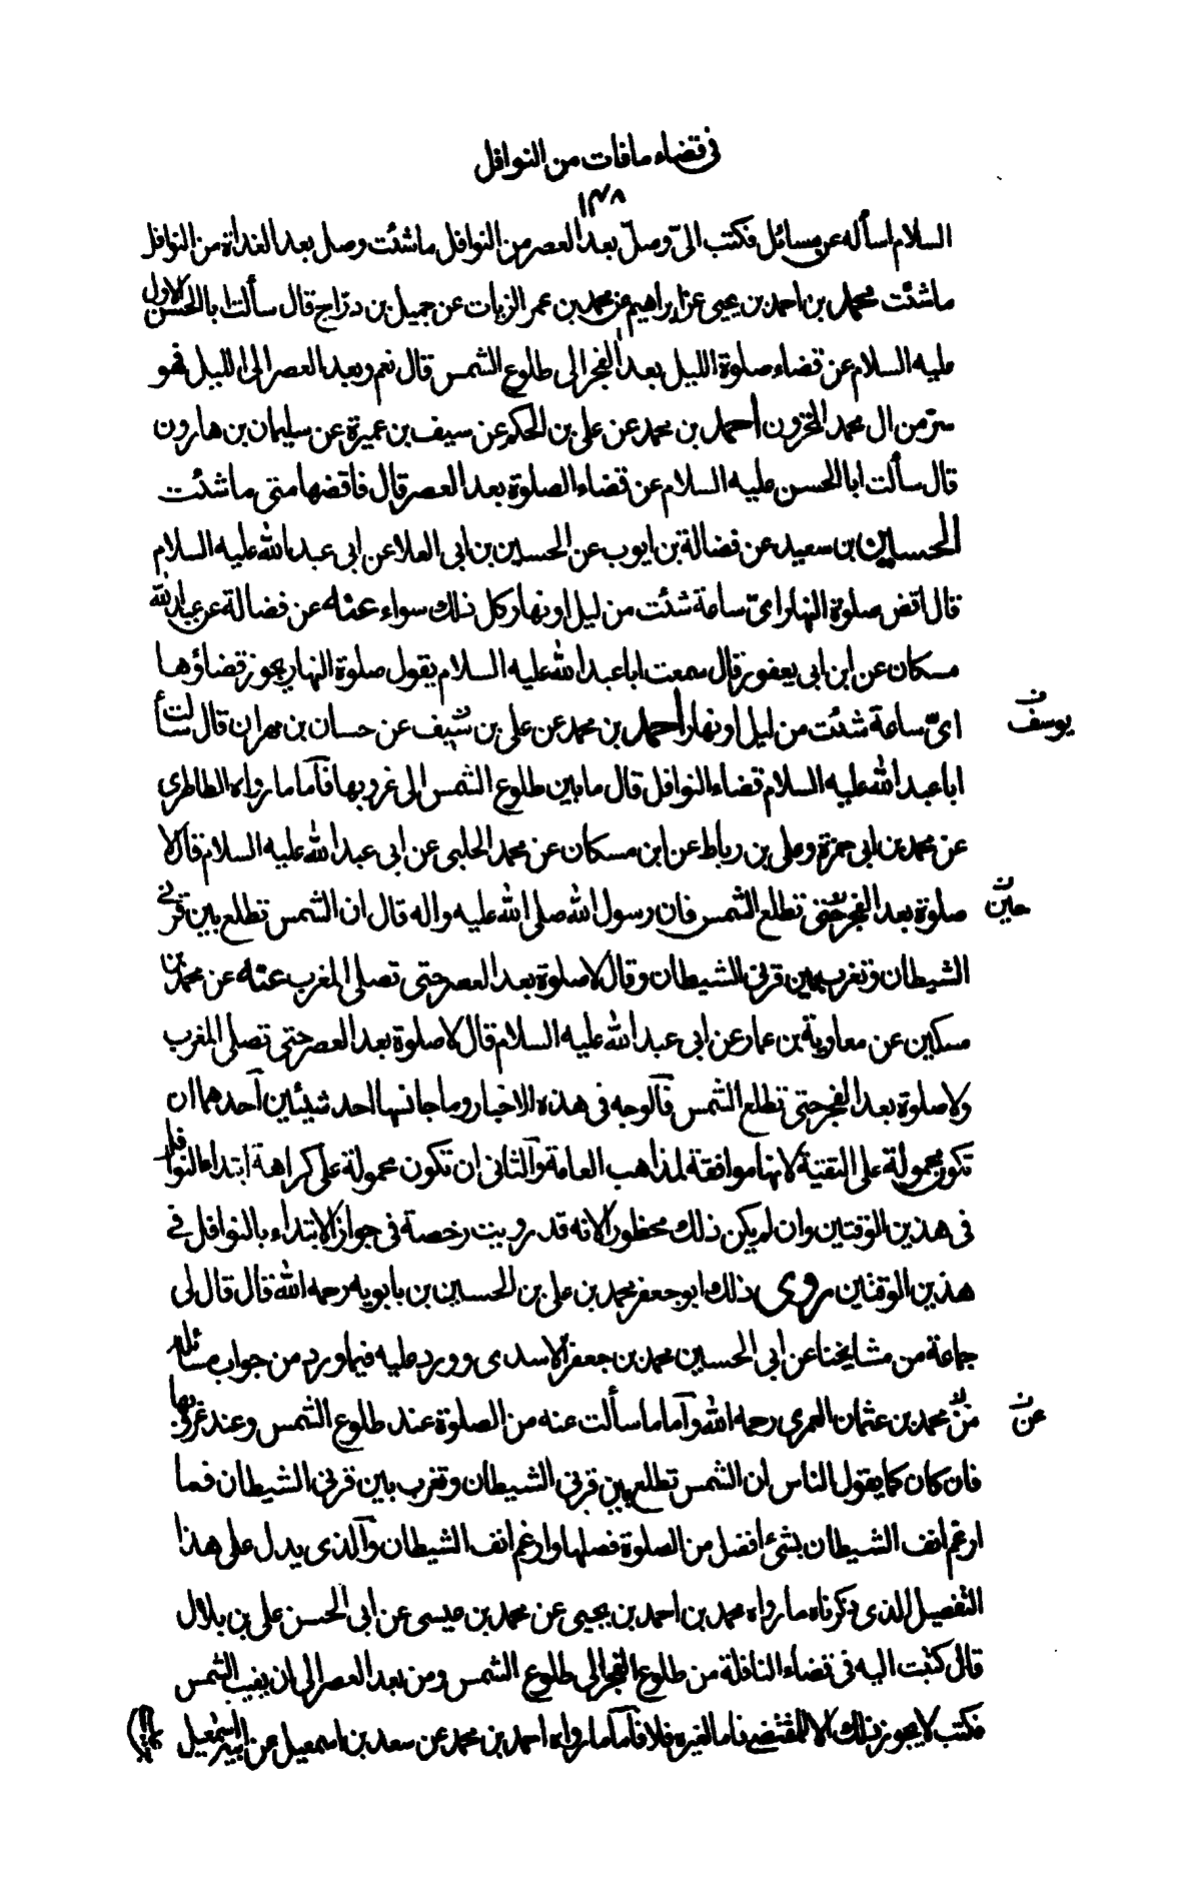 في قضاء ما فات من النوافل
١٣٨
السلام اسأله عن مسائل فكتب اليّ وصلّ بعد العصر من النوافل ما شئت وصل بعد الغداة من النوافل
ما شئت محمد بن احمد بن يحيى عن ابراهيم عن محمد بن عمر الزيات عن جميل بن دراج قال سألت ابا الحسن الاول
عليه السلام عن قضاء صلوة الليل بعد الفجر الى طلوع الشمس قال نعم وبعد العصر الى الليل فهو
سرّ من ال محمد المخزون احمد بن محمد عن علي بن الحكم عن سيف بن عميرة عن سليمان بن هارون
قال سألت ابا الحسن عليه السلام عن قضاء الصلوة بعد العصر قال فاقضها متى ما شئت
الحسين بن سعيد عن فضالة بن ايوب عن الحسين بن ابي العلا عن ابي عبد الله عليه السلام
قال اقض صلوة النهار ايّ ساعة شئت من ليل او نهار كل ذلك سواء عنه عن فضالة عن عبد الله
مسكان عن ابن ابي يعفور قال سمعت ابا عبد الله عليه السلام يقول صلوة النهار يجوز قضاؤها
ايّ ساعة شئت من ليل او نهار احمد بن محمد عن علي بن سيف عن حسان بن مهران قال سألت
يوسف ن
ابا عبد الله عليه السلام قضاء النوافل قال ما بين طلوع الشمس الى غروبها فاما ما رواه الطاطري
عن محمد بن ابي حمزة وعلي بن رباط عن ابن مسكان عن محمد الحلبي عن ابي عبد الله عليه السلام قال لا
صلوة بعد الفجر حتى تطلع الشمس فان رسول الله صلى الله عليه واله قال ان الشمس تطلع بين قرني
حين ن
الشيطان وتغرب بين قرني الشيطان وقال لا صلوة بعد العصر حتى تصلي المغرب عنه عن محمد بن
مسكين عن معاوية بن عمار عن ابي عبد الله عليه السلام قال لا صلوة بعد العصر حتى تصلي المغرب
ولا صلوة بعد الفجر حتى تطلع الشمس فالوجه في هذه الاخبار وما جانسها احد شيئين احدهما ان
تكون محمولة على التقية لانها موافقة لمذاهب العامة والثاني ان تكون محمولة على كراهة ابتداء النوافل
في هذين الوقتين وان لم يكن ذلك محظورا لانه قد رويت رخصة في جواز الابتداء بالنوافل في
هذين الوقتين روى ذلك ابو جعفر محمد بن علي بن الحسين بن بابويه رحمه الله قال قال لي
جماعة من مشايخنا عن ابي الحسين محمد بن جعفر الاسدي وورد عليه فيما ورد من جواب مسائله
من محمد بن عثمان العمري رحمه الله واما ما سألت عنه من الصلوة عند طلوع الشمس وعند غروبها
عن ن
فان كان كما يقول الناس ان الشمس تطلع بين قرني الشيطان وتغرب بين قرني الشيطان فما
ارغم انف الشيطان بشئ افضل من الصلوة فصلها وارغم انف الشيطان والذي يدل على هذا
التفصيل الذي ذكرناه ما رواه محمد بن احمد بن يحيى عن محمد بن عيسى عن ابي الحسن علي بن بلال
قال كتبت اليه في قضاء النافلة من طلوع الفجر الى طلوع الشمس ومن بعد العصر الى ان يغيب الشمس
فكتب لا يجوز ذلك الا للمقتضي فاما لغيره فلا فاما ما رواه احمد بن محمد عن سعد بن اسمعيل عن ابيه اسمعيل